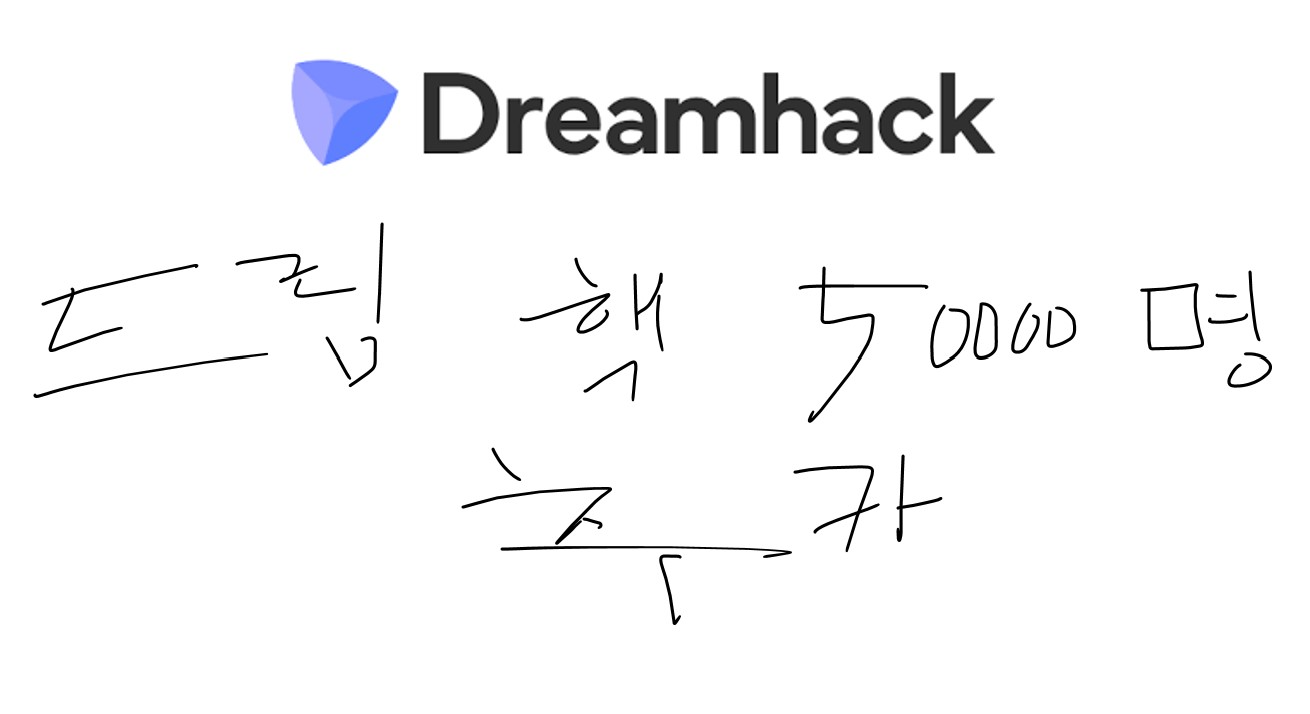 Dreamhack
드림 핵 50000 명
추카